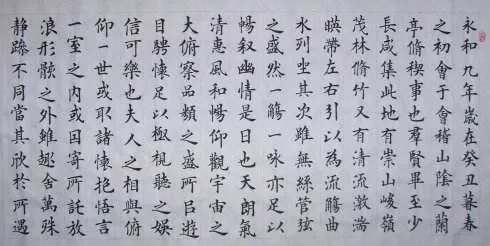 永和九年歲在癸丑暮春
之初會于會稽山陰之蘭
亭脩稧事也羣賢畢至少
長咸集此地有崇山峻嶺
茂林脩竹又有清流激湍
暎帶左右引以為流觴曲
水列坐其次雖無絲管弦
之盛然一觴一咏亦足以
暢叙幽情是日也天朗氣
清惠風和暢仰觀宇宙之
大俯察品類之盛所㠯遊
目騁懷足以極視聽之娱
信可樂也夫人之相與俯
仰一世或取諸懷抱悟言
一室之内或因寄所託放
浪形骸之外雖趣舍萬殊
静躁不同當其欣於所遇